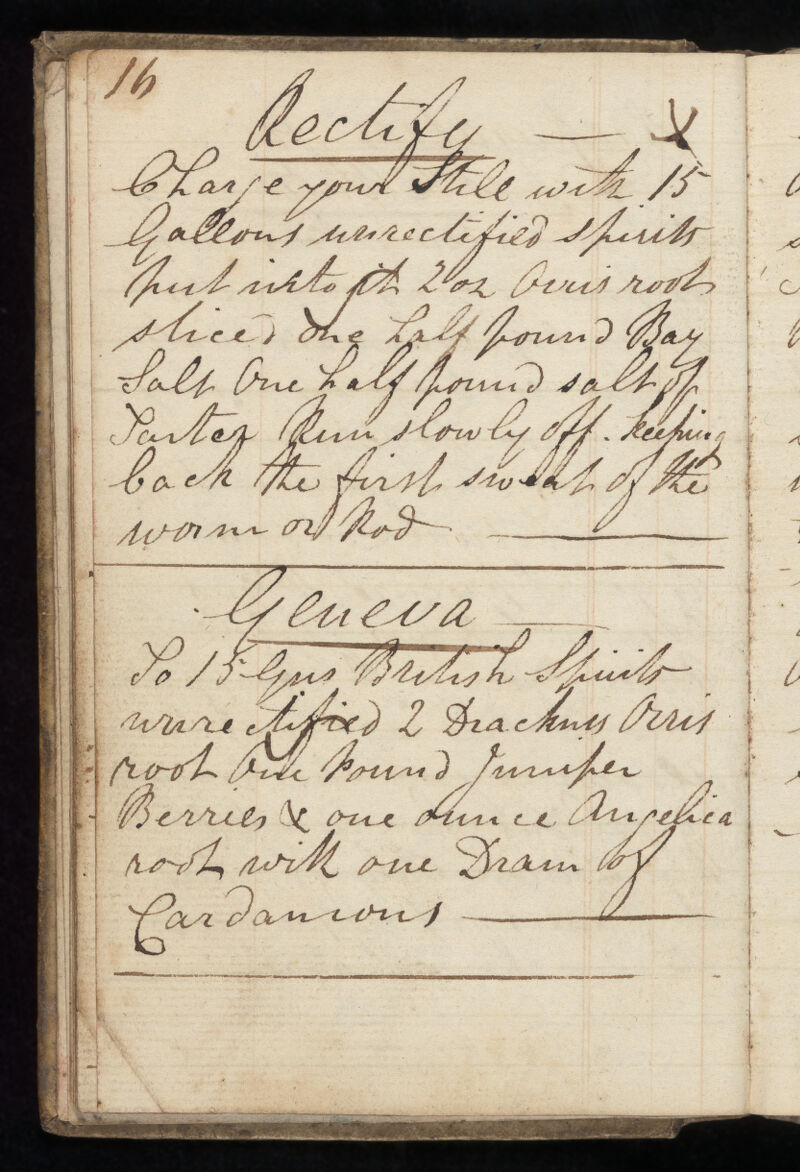 16
Rectify — X
Charge your Still with 15
Gallons unrectified spirits
put into it 2 oz Orris root
sliced One half pound Bay
Salt One half pound salt of
Tarter Run slowly off. keeping
back the first sweat of the
worm or Rod —
Geneva —
To 15 Gns British Spirits
unrectified 2 Drachms Orris
root One Pound Juniper
Berries & one ounce Angelica
root with one Dram of
Cardamons —